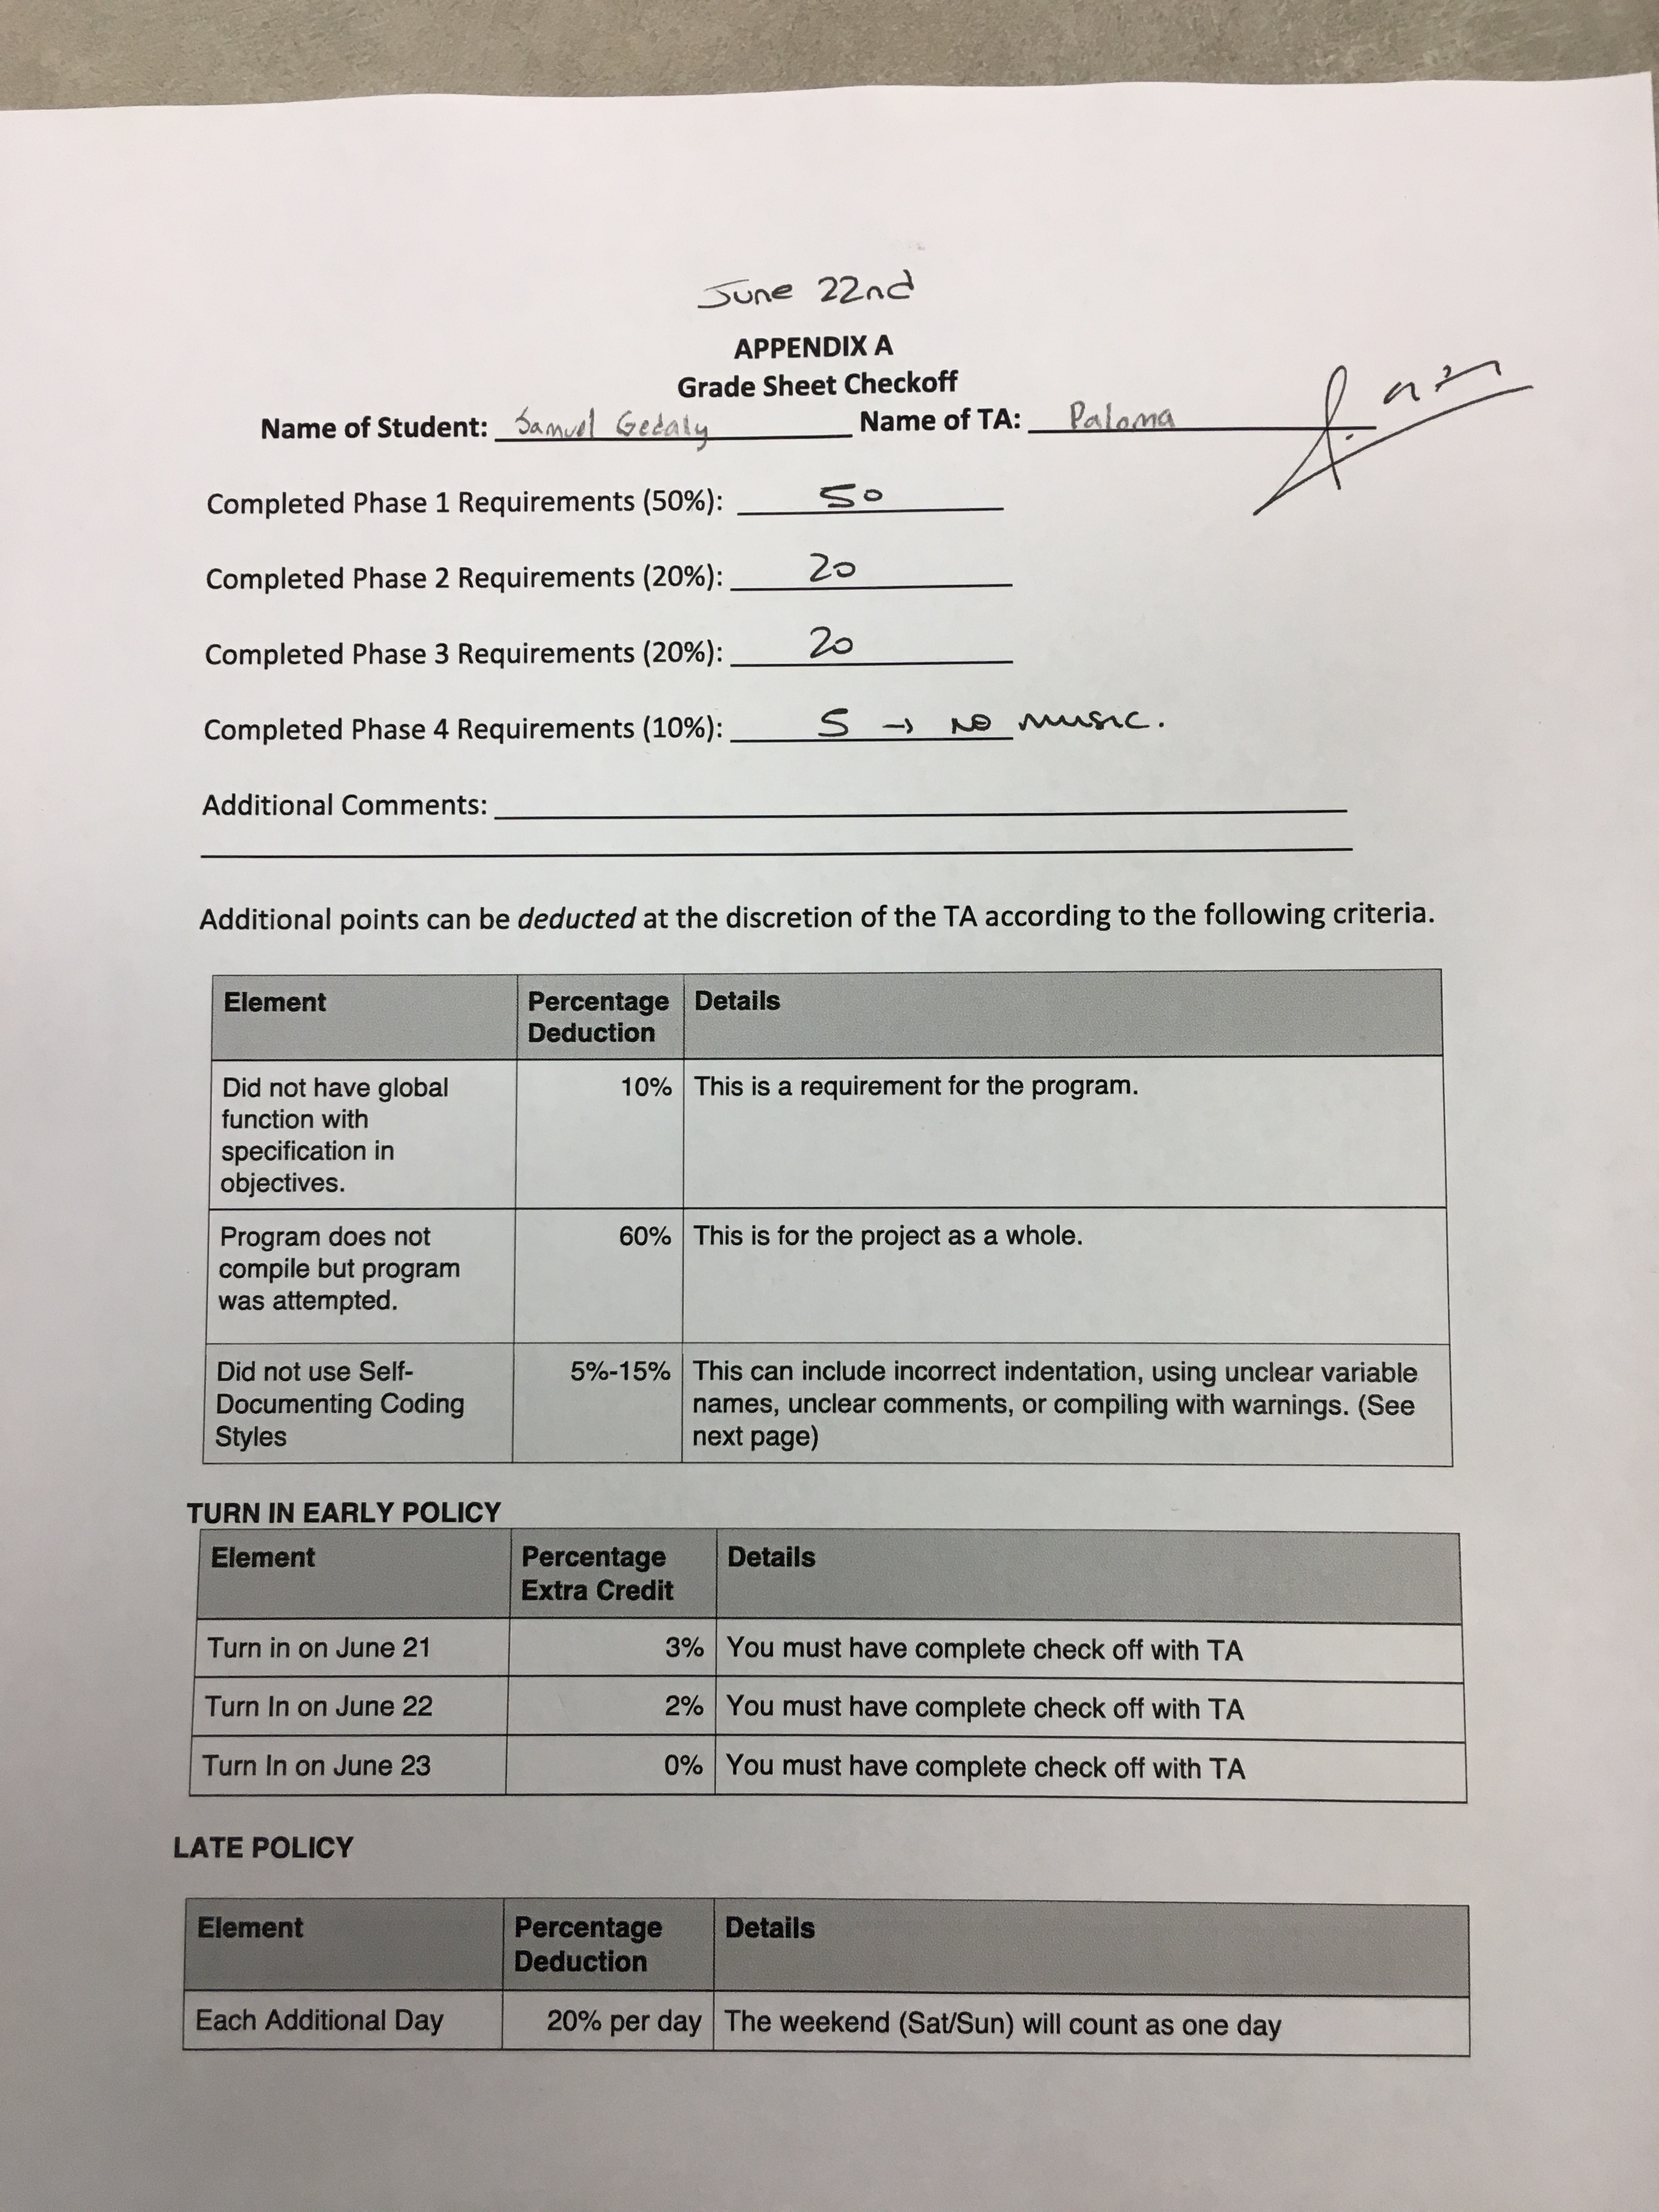 June 22nd
APPENDIX A
Grade Sheet Checkoff
Name of Student: Samuel Gedaly Name of TA: Paloma
Completed Phase 1 Requirements (50%): 50
Completed Phase 2 Requirements (20%): 20
Completed Phase 3 Requirements (20%): 20
Completed Phase 4 Requirements (10%): 5 → NO music.
Additional Comments:
Additional points can be deducted at the discretion of the TA according to the following criteria.
Element Percentage Details
Deduction
Did not have global 10% This is a requirement for the program.
function with
specification in
objectives.
Program does not 60% This is for the project as a whole.
compile but program
was attempted.
Did not use Self- 5%-15% This can include incorrect indentation, using unclear variable
Documenting Coding names, unclear comments, or compiling with warnings. (See
Styles next page)
TURN IN EARLY POLICY
Element Percentage Details
Extra Credit
Turn in on June 21 3% You must have complete check off with TA
Turn In on June 22 2% You must have complete check off with TA
Turn In on June 23 0% You must have complete check off with TA
LATE POLICY
Element Percentage Details
Deduction
Each Additional Day 20% per day The weekend (Sat/Sun) will count as one day